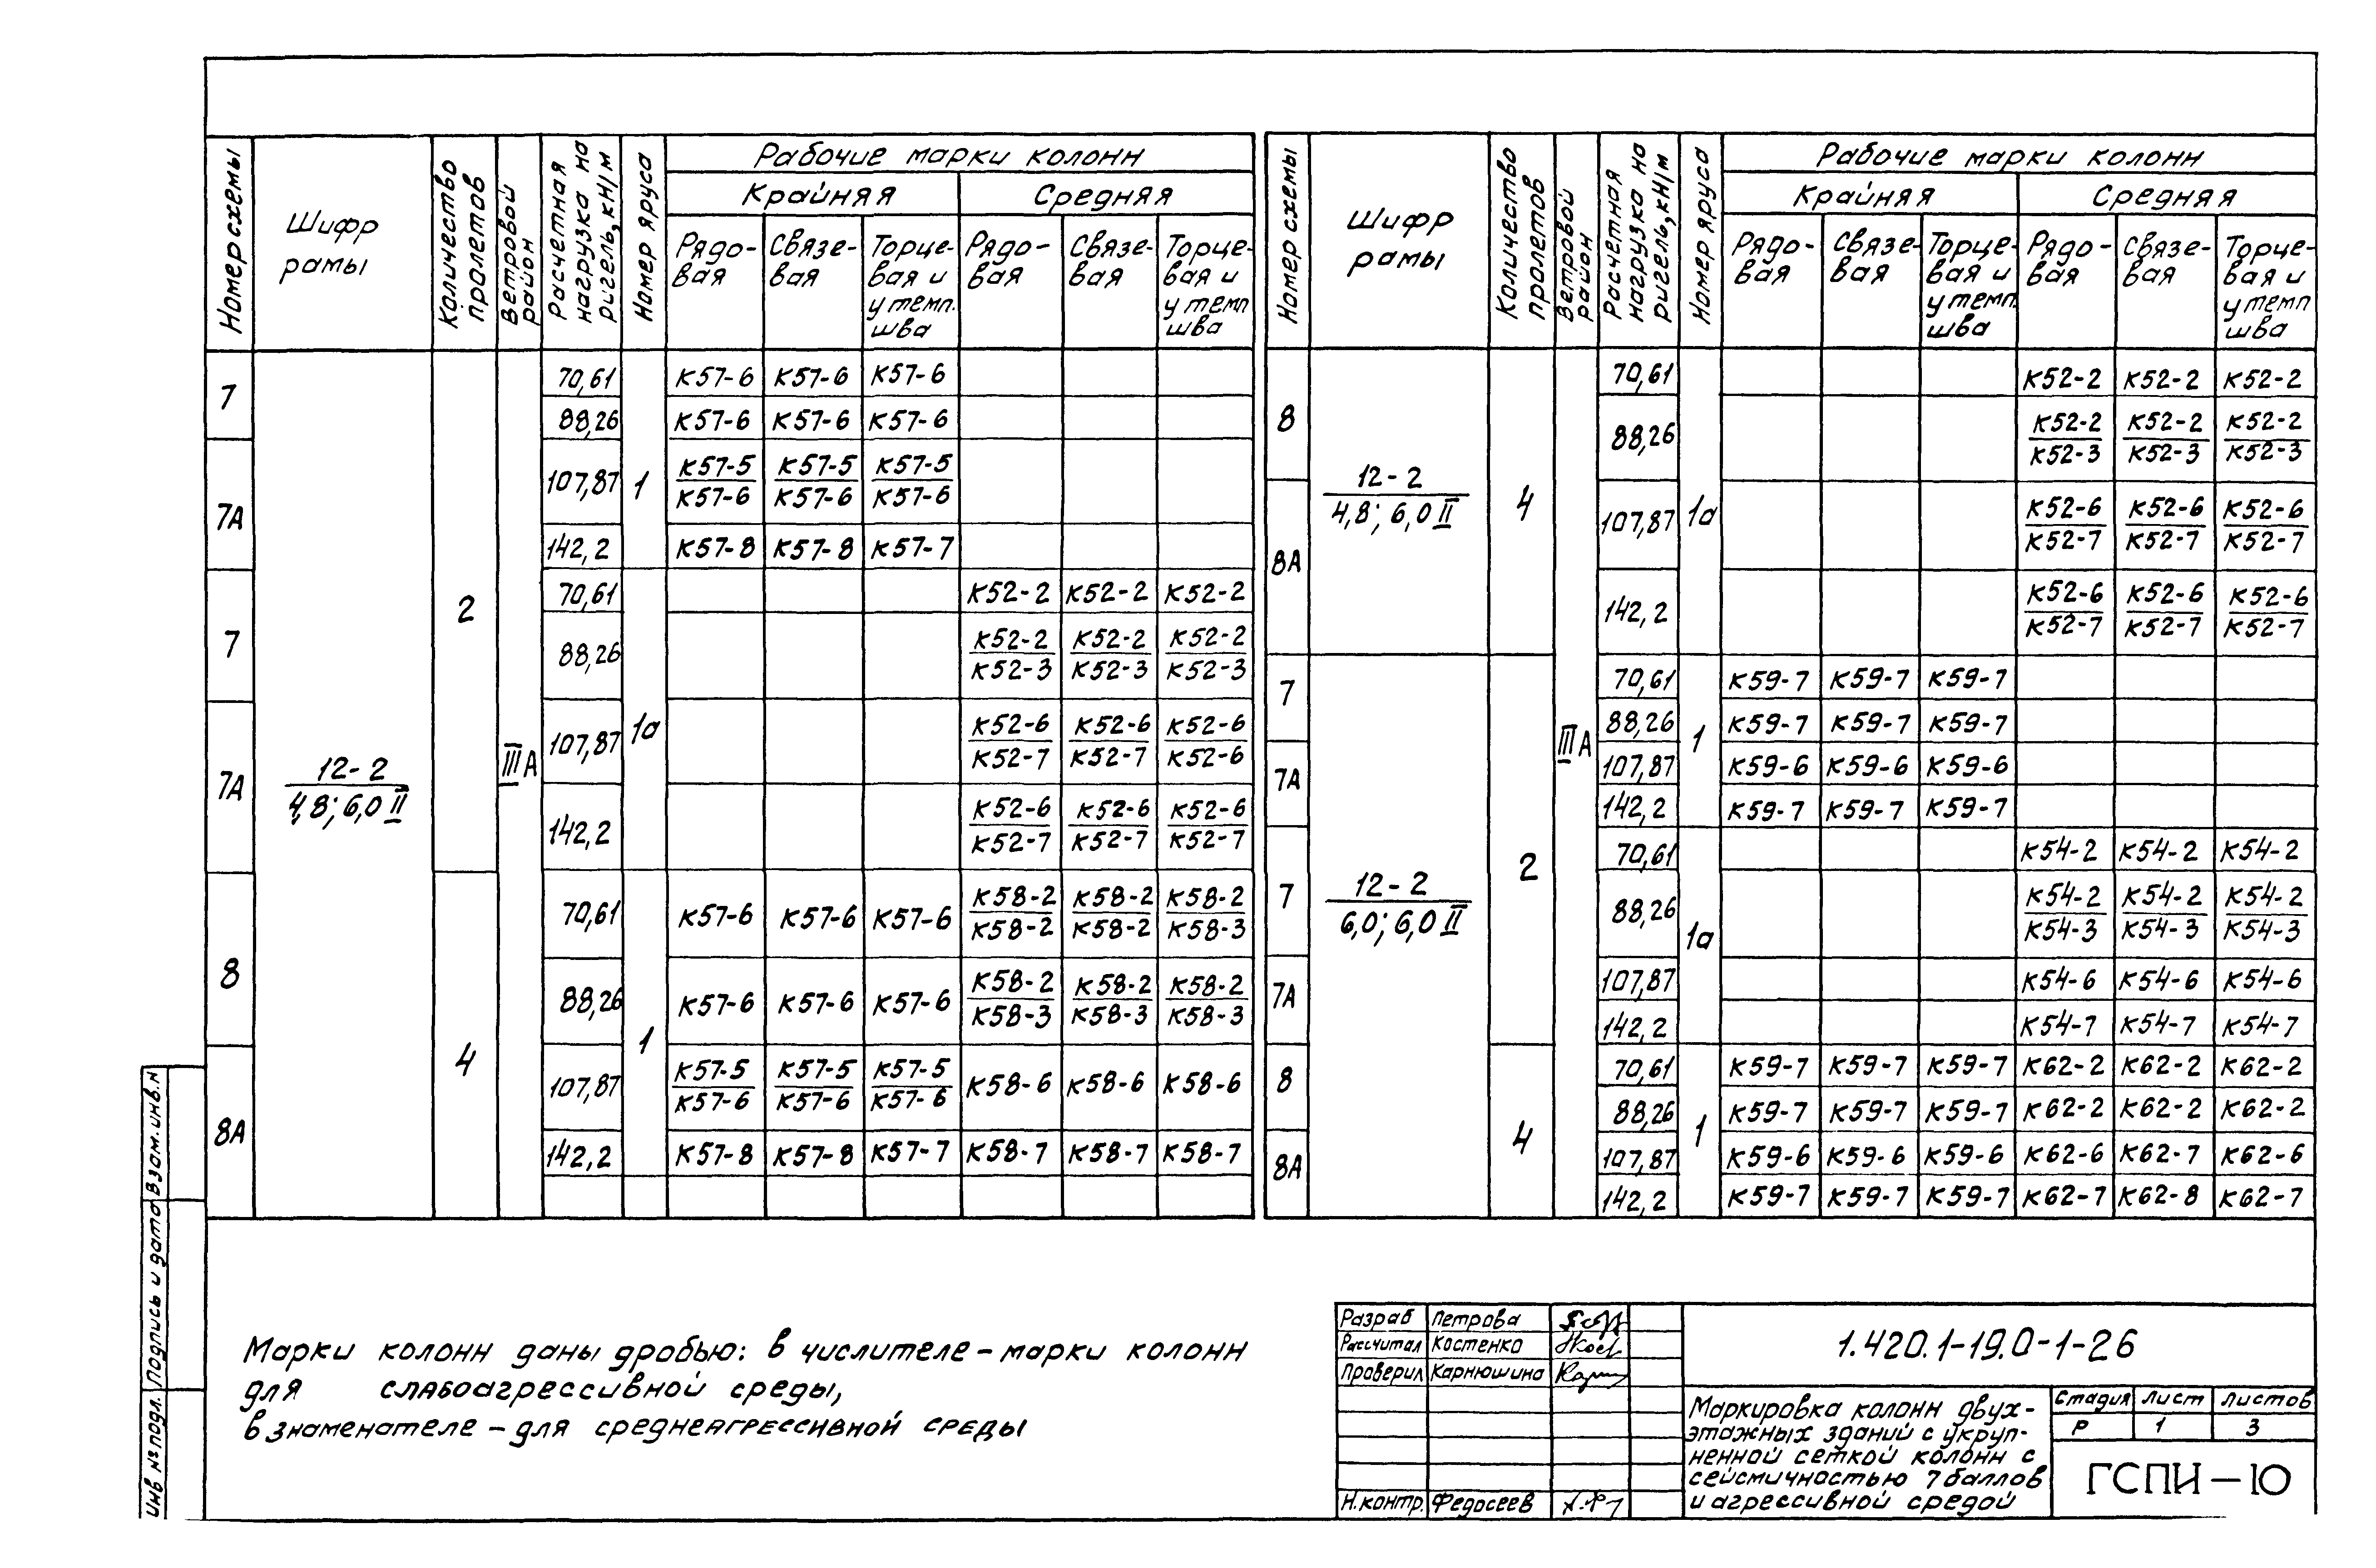 Номер схемы
Шифр рамы
Количество пролетов
Ветровой район
Расчетная нагрузка на ригель, кН/м
Номер яруса
Рабочие марки колонн
Крайняя Средняя
Рядовая Связевая Торцевая и у темп. шва Рядовая Связевая Торцевая и у темп шва
7 7А 7 7А 8 8А
12-2
4,8; 6,0 II
2 4
III А
1 1а 1
70,61 К57-6 К57-6 К57-6
88,26 К57-6 К57-6 К57-6
107,87 К57-5 К57-5 К57-5
К57-6 К57-6 К57-6
142,2 К57-8 К57-8 К57-7
70,61 К52-2 К52-2 К52-2
88,26 К52-2 К52-2 К52-2
К52-3 К52-3 К52-3
107,87 К52-6 К52-6 К52-6
К52-7 К52-7 К52-6
142,2 К52-6 К52-6 К52-6
К52-7 К52-7 К52-7
70,61 К57-6 К57-6 К57-6 К58-2 К58-2 К58-2
К58-2 К58-2 К58-3
88,26 К57-6 К57-6 К57-6 К58-2 К58-2 К58-2
К58-3 К58-3 К58-3
107,87 К57-5 К57-5 К57-5 К58-6 К58-6 К58-6
К57-6 К57-6 К57-6
142,2 К57-8 К57-8 К57-7 К58-7 К58-7 К58-7
Номер схемы
Шифр рамы
Количество пролетов
Ветровой район
Расчетная нагрузка на ригель, кН/м
Номер яруса
Рабочие марки колонн
Крайняя Средняя
Рядовая Связевая Торцевая и у темп. шва Рядовая Связевая Торцевая и у темп шва
8 8А 7 7А 7 7А 8 8А
12-2
4,8; 6,0 II
12-2
6,0; 6,0 II
4 2 4
III А
1а 1 1а 1
70,61 К52-2 К52-2 К52-2
88,26 К52-2 К52-2 К52-2
К52-3 К52-3 К52-3
107,87 К52-6 К52-6 К52-6
К52-7 К52-7 К52-7
142,2 К52-6 К52-6 К52-6
К52-7 К52-7 К52-7
70,61 К59-7 К59-7 К59-7
88,26 К59-7 К59-7 К59-7
107,87 К59-6 К59-6 К59-6
142,2 К59-7 К59-7 К59-7
70,61 К54-2 К54-2 К54-2
88,26 К54-2 К54-2 К54-2
К54-3 К54-3 К54-3
107,87 К54-6 К54-6 К54-6
142,2 К54-7 К54-7 К54-7
70,61 К59-7 К59-7 К59-7 К62-2 К62-2 К62-2
88,26 К59-7 К59-7 К59-7 К62-2 К62-2 К62-2
107,87 К59-6 К59-6 К59-6 К62-6 К62-7 К62-6
142,2 К59-7 К59-7 К59-7 К62-7 К62-8 К62-7
Марки колонн даны дробью: в числителе - марки колонн
для слабоагрессивной среды,
в знаменателе - для среднеагрессивной среды
Взам. инв. н
Подпись и дата
Инв № подл.
Разраб Петрова
Рассчитал Костенко
Проверил Карнюшина
Н. контр. Федосеев
1.420.1-19.0-1-26
Маркировка колонн двух-
этажных зданий с укруп-
ненной сеткой колонн с
сейсмичностью 7 баллов
и агрессивной средой
Стадия Лист Листов
Р 1 3
ГСПИ-10